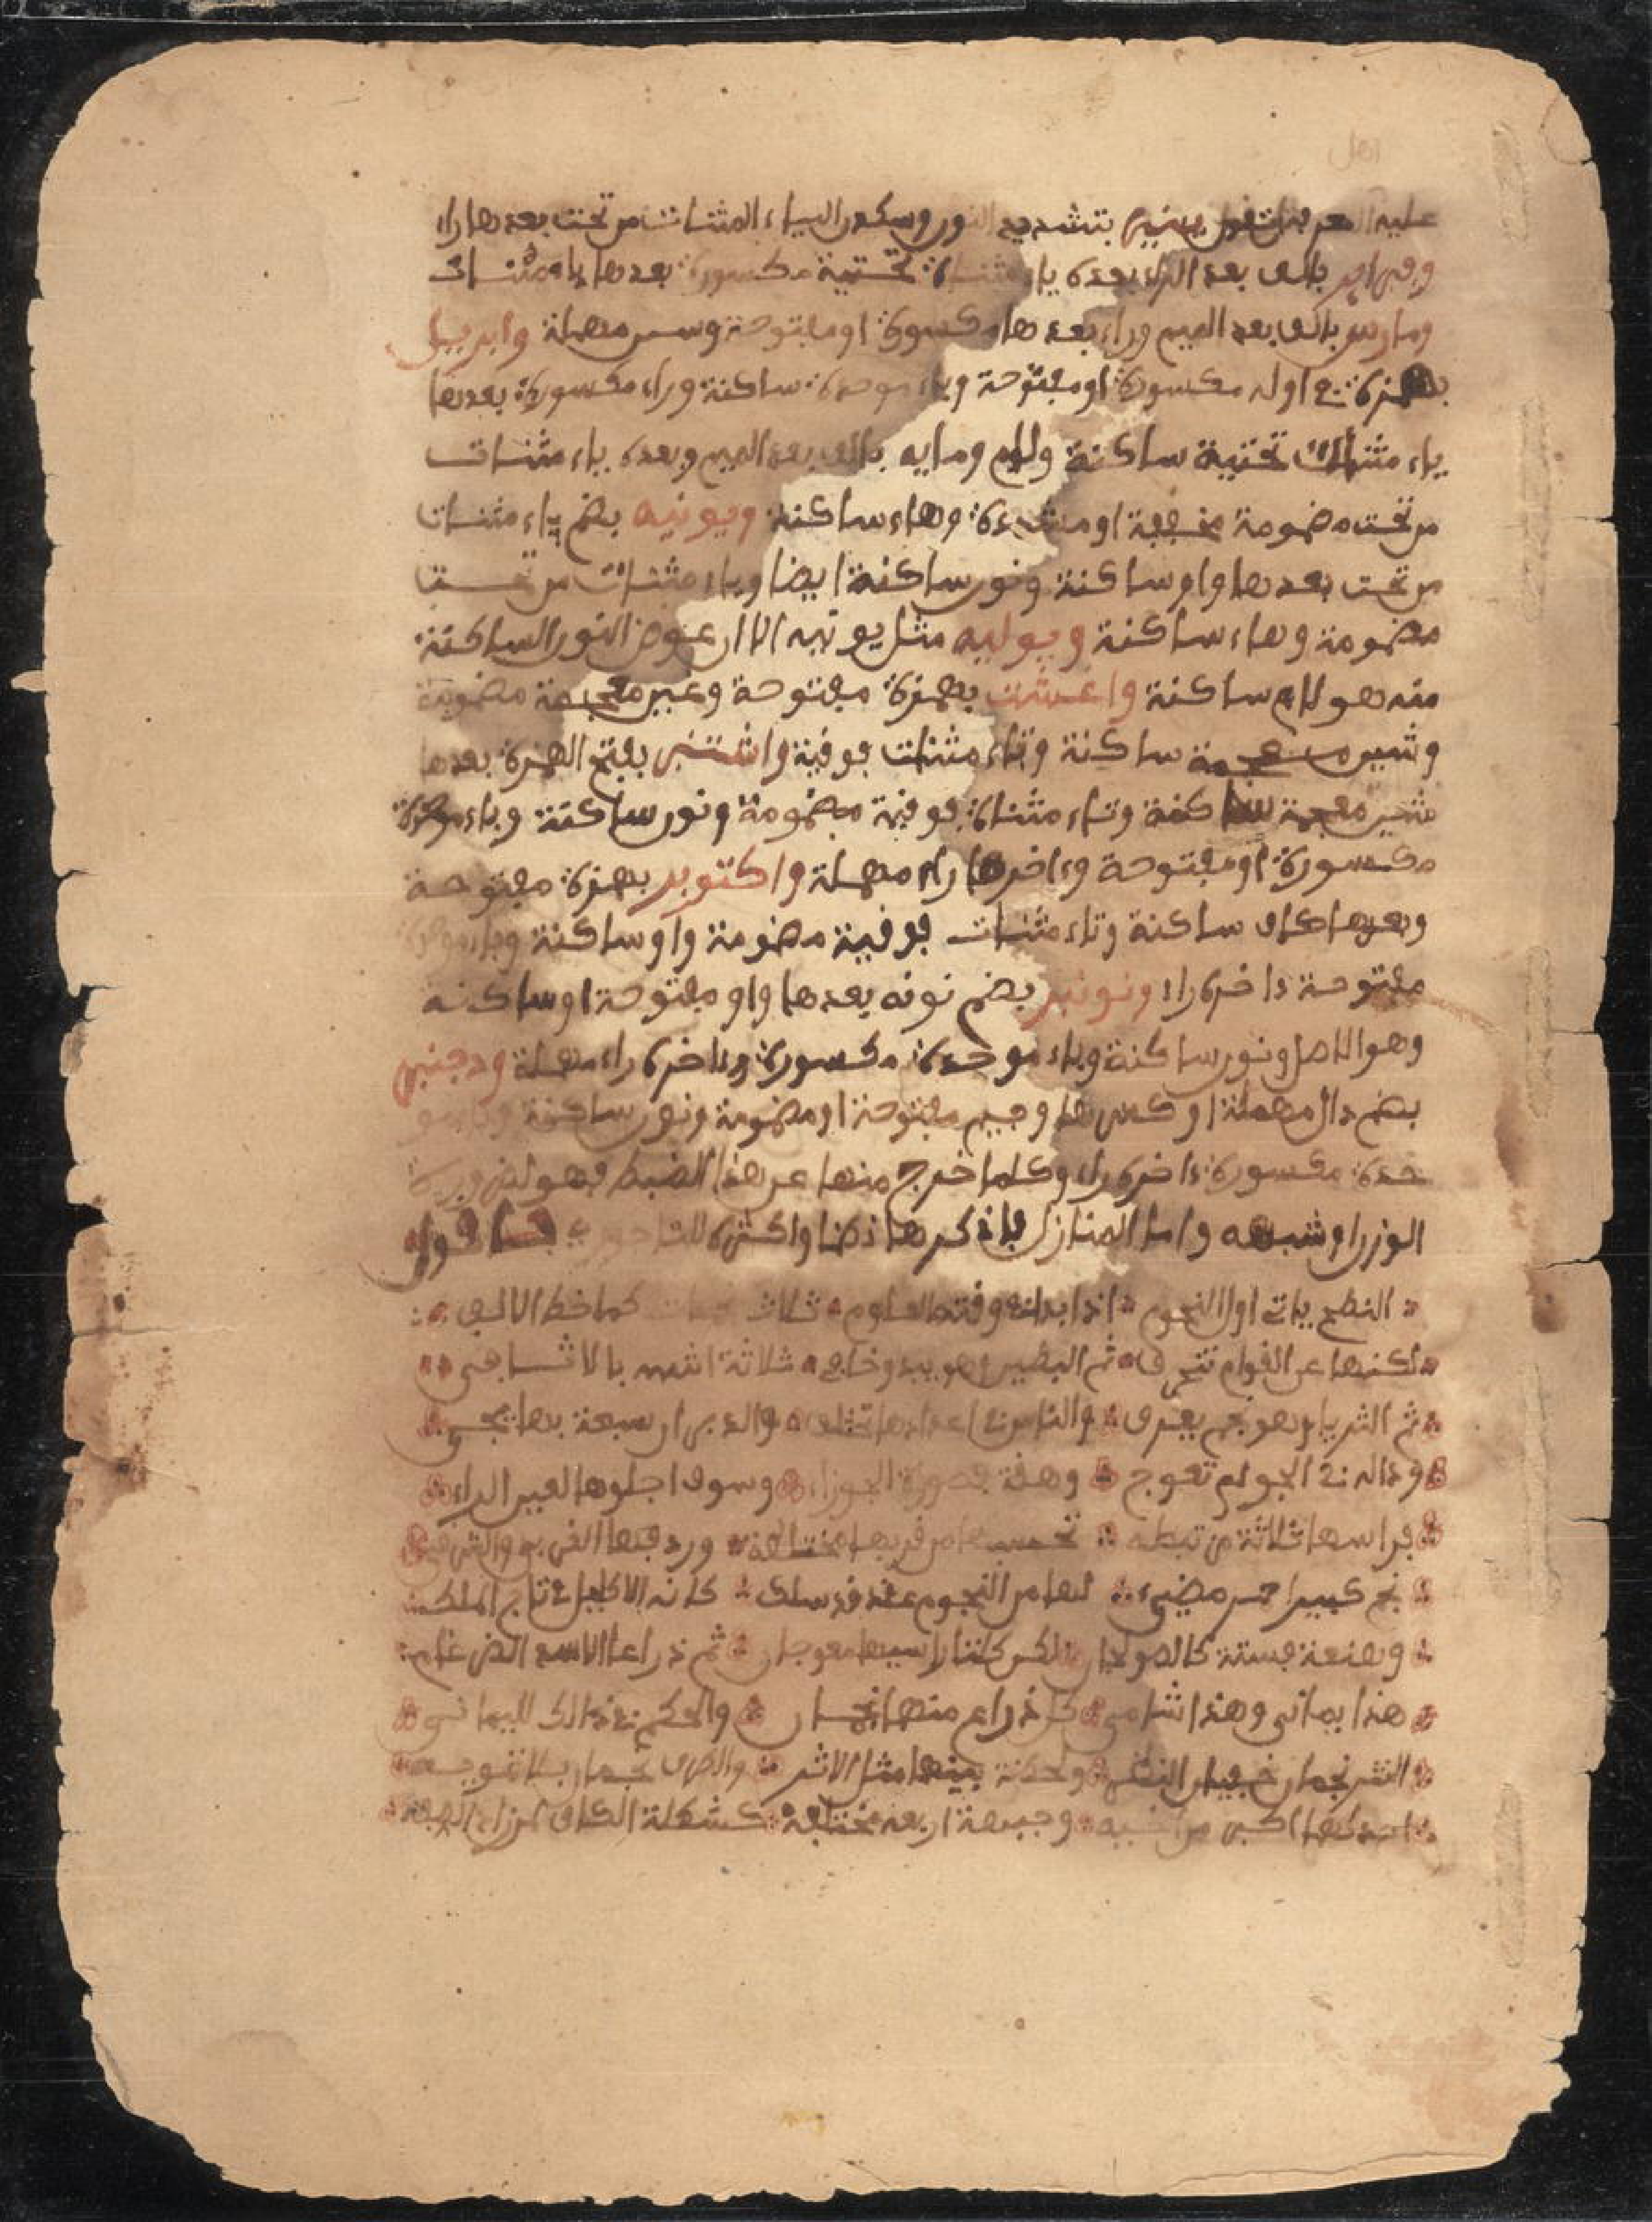 اهل
عليه فتقول ينير بتشديد النون وسكون الياء المثنات من تحت بعدها راء
وفبراير بالف بعد الراء بعده ياء مثناة تحتية مكسورة بعدها راء
ومارس بالف بعد الميم وراء بعدها مكسورة او مفتوحة وسين مهملة وابرييل
بهمزة في اوله مكسورة او مفتوحة وباء موحدة ساكنة وراء مكسورة بعدها
ياء مثنات تحتية ساكنة ولام ومايه بالف بعد الميم وبعده ياء مثنات
من تحت مضمومة مخففة او مشددة وهاء ساكنة ويونيه بضم ياء مثنات
من تحت بعدها واو ساكنة ونون ساكنة ايضا وياء مثنات من تحت
مضمومة وهاء ساكنة ويوليه مثل يونيه الا ان عوض النون الساكنة
منه هو لام ساكنة واغشت بهمزة مفتوحة وغين معجمة مضمومة
وشين معجمة ساكنة وتاء مثنات فوفية واشتنبر بفتح الهمزة بعدها
شين معجمة ساكنة وتاء مثناة فوفية مضمومة ونون ساكنة وباء موحدة
مكسورة او مفتوحة وءاخرها راء مهملة واكتوبر بهمزة مفتوحة
وبعدها كاف ساكنة وتاء مثنات فوفية مضمومة واو ساكنة وباء موحدة
مفتوحة ءاخره راء ونونبر بضم نونه بعدها واو مفتوحة او ساكنة
وهو الاصل ونون ساكنة وباء موحدة مكسورة وءاخره راء مهملة ودجنبر
بضم دال مهملة او كسرها وجيم مفتوحة او مضمومة ونون ساكنة وباء مو
حدة مكسورة ءاخره راء وكلما خرج منها عن هذا الضبط فهو لضرورة
الوزن او شبهه واما المنازل فاذكرها نظما واكثره فافول
النطح ياتي اول النجوم اذا بدا وفته المعلوم ثلاث كما خط الالف
لكنها عن الفوام تنحرف ثم البطين وهو يبدو ثلاثة اشبه بالاثافي
ثم الثريا وهو نجم يعرف والناس في اعدادها تختلف والدبران سبعة
في الجو لم تعوج وهفعة بصورة الجوزاء وسوف اجلوها لعين الراء
براسها ثلاثة تحسبها من فربها مختلفة
نجم كبير احمر مضيء لها من النجوم عفد فد سلك كانه الاكليل في تاج الملك
وهنعة خمسة كالصولجان لكن كلتا راسيها معوجان ثم ذراعا الاسد الضرغام
هذا يماني وهذا شامي كل ذراع منها نجمان والحكم في ذالك لليماني
النثر نجمان خفيان النظر بينهما مثل الاثر والطرف نجمان بلا تفويس
احداهما اكبر من اخيه وجبهة اربعة مختلفة كشكلة الكاف